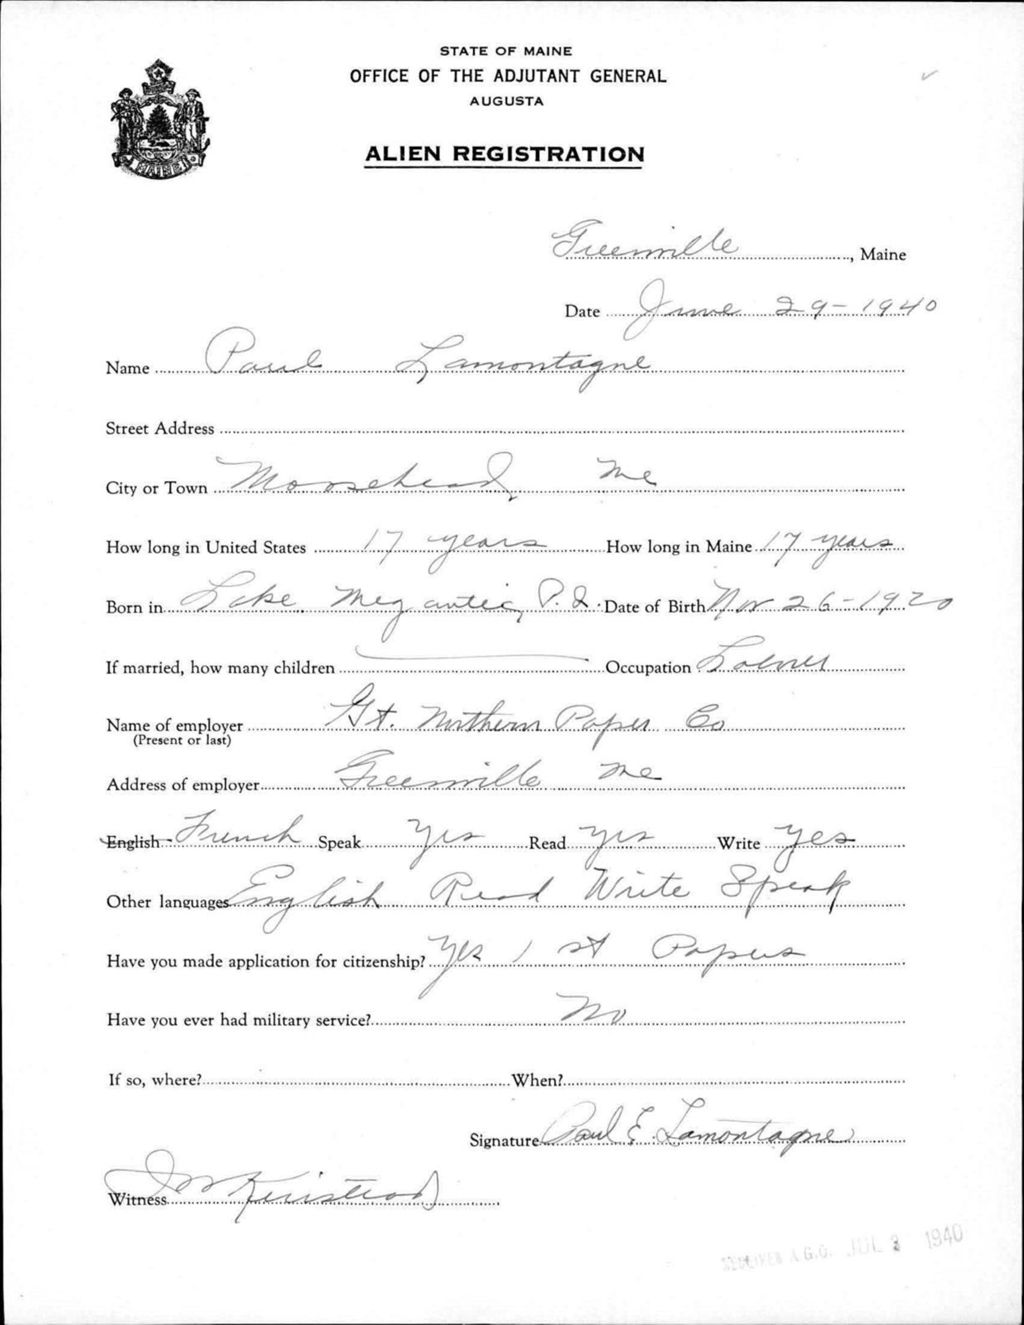 STATE OF MAINE
OFFICE OF THE ADJUTANT GENERAL
AUGUSTA
ALIEN REGISTRATION
MAINE
Greenville, Maine
Date June 29-1940
Name Paul Lamontagne
Street Address
City or Town Moosehead, Me
How long in United States 17 years How long in Maine 17 years
Born in Lake Megantic, P.Q. Date of Birth Nov 26-1920
If married, how many children Occupation
Name of employer Gt. Northern Paper Co
(Present or last)
Address of employer Greenville Me
English French Speak Yes Read yes Write yes
Other languages English Read Write Speak
Have you made application for citizenship? Yes 1st Papers
Have you ever had military service? No
If so, where? When?
Signature Paul E Lamontagne
Witness
A.G.O. JUL 1940